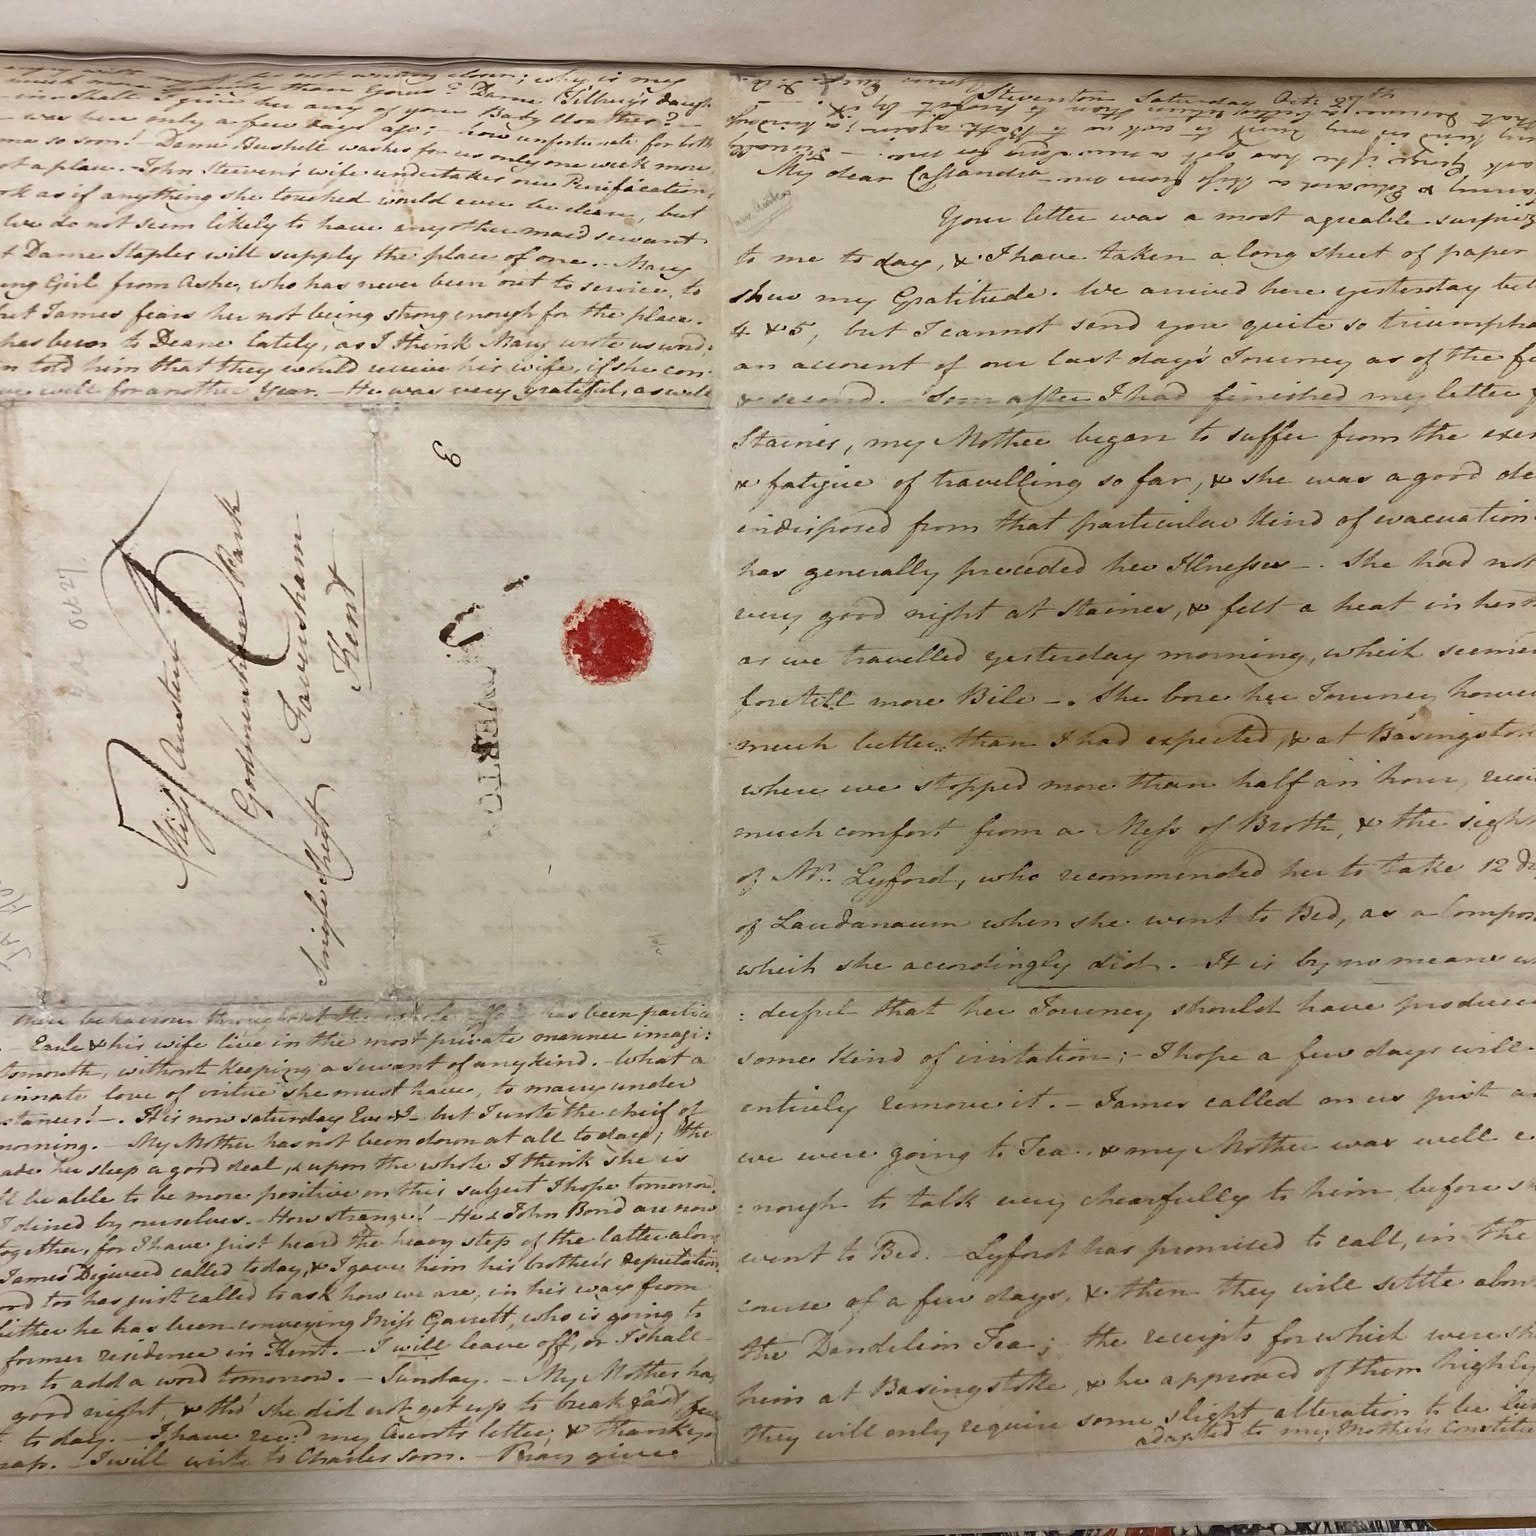 Steventon Saturday Octr 27th
My dear Cassandra
Your letter was a most agreable surprize
to me to day, & I have taken a long sheet of paper
shew my Gratitude. We arrived here yesterday bet
4 & 5, but I cannot send you quite so triumpha
an account of our last day's Journey as of the fi
& second. Soon after I had finished my letter f
Staines, my Mother began to suffer from the exer
& fatigue of travelling so far, & she was a good de
indisposed from that particular kind of evacuation
has generally preceded her Illnesses-. She had not
very good night at Staines, & felt a heat in her th
as we travelled yesterday morning, which seemed
foretell more Bile -. She bore her Journey howev
much better than I had expected, & at Basingstoke
where we stopped more than half an hour, recei
much comfort from a Mess of Broth, & the sight
of Mr. Lyford, who recommended her to take 12 dr
of Laudanum when she went to Bed, as a Compos
which she accordingly did. - It is by no means w
:derful that her Journey should have produced
some kind of irritation; - I hope a few days will
entirely remove it. - James called on us just as
we were going to Tea, & my Mother was well e
:nough to talk very chearfully to him before she
went to Bed. - Lyford has promised to call, in the
course of a few days, & then they will settle about
the Dandelion Tea; - the receipts for which were sh
him at Basingstoke, & he approved of them highly
they will only require some slight alteration to be
adapted to my Mother's Constitu
Dame Tilbury's daugh
shall I give her any of your Baby Cloathes? -
was here only a few days ago; - how unfortunate for both
so soon! - Dame Bushell washes for us only one week more
of a place. - John Steevens' wife undertakes our Purification;
look as if anything she touched would ever be clean, but
We do not seem likely to have any other maidservant
& Dame Staples will supply the place of one. - Mary
ng Girl from Ashe, who has never been out to service, to
but James fears her not being strong enough for the place.
has been to Deane lately, as I think Mary wrote us word;
n told him that they would receive his wife, if she con
well for another Year. - He was very grateful, as well
Miss Austen
Godmersham Park
Faversham
Kent
Single Sheet
3
OVERTON
Oct 27
their behaviour throughout the whole has been partic
- Earle & his wife live in the most private manner imagi:
tsmouth, without keeping a servant of any kind. - What a
innate love of virtue she must have, to marry under
stances! -. It is now Saturday Eveng, but I wrote the cheif of
morning. - My Mother has not been down at all to day; the
made her sleep a good deal, & upon the whole I think she is
ll be able to be more positive on this subject I hope tomorrow.
I dined by ourselves. - How strange! - He & John Bond are now
together, for I have just heard the heavy step of the latter along
James Digweed called to day, & I gave him his brother's deputation.
ord too has just called to ask how we are, in his way from
hither he has been conveying Miss Garrett, who is going to
former residence in Kent. - I will leave off, or I shall
om to add a word tomorrow. - Sunday. - My Mother ha
good night, & tho' she did not get up to breakfast, fe
to day. - I have recd my Aunt's letter, & thank yo
rap. - I will write to Charles soon. - Pray give